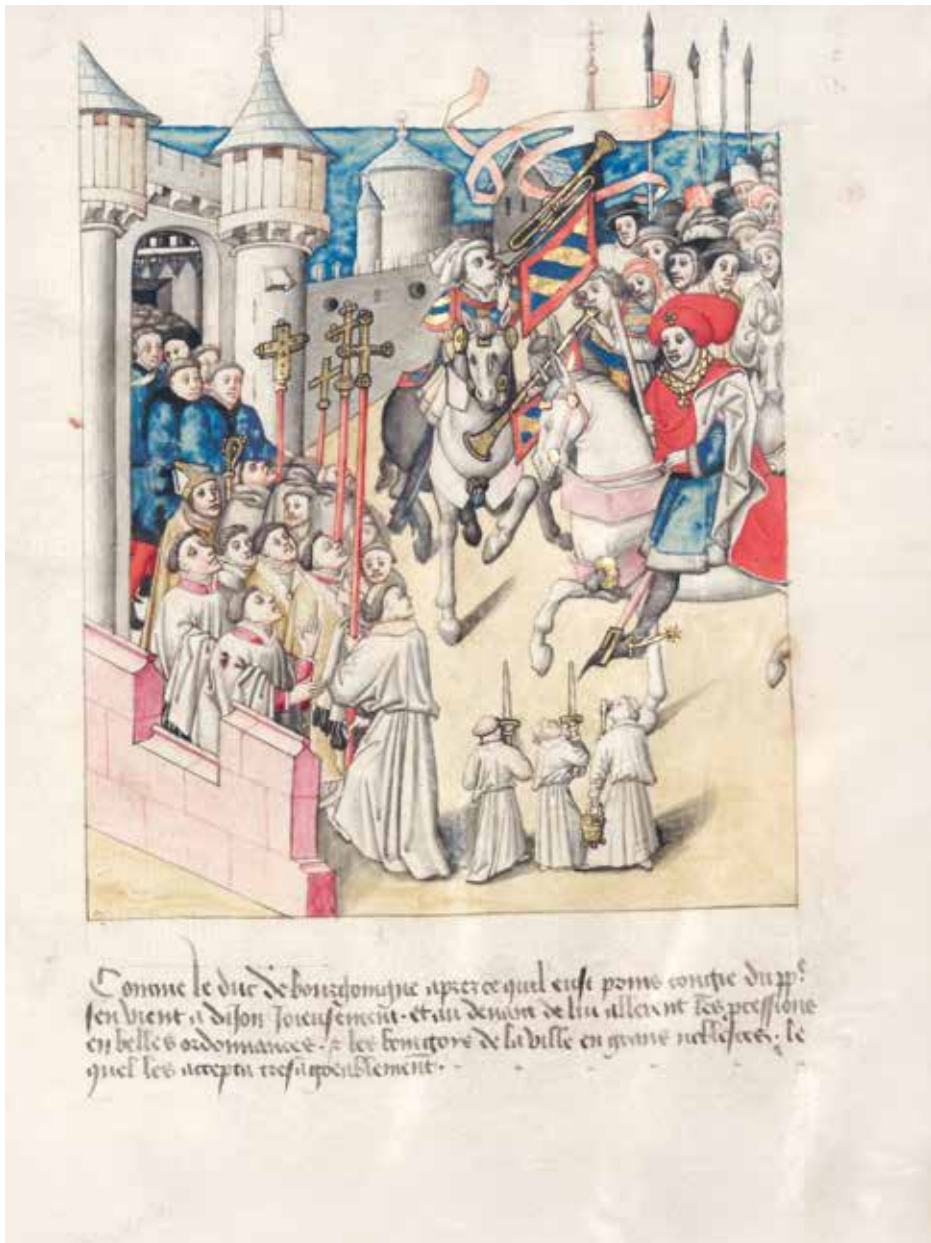 Comme le duc de bourgoingne apres ce quil eust prins congie du pp̄e
sen vient a dijon Joieusement · et au devant de lui allerent les pcessions
en belles ordonnances · & les bourgois de la ville en grans noblesces · le
quel les accepta tresagreablement · -